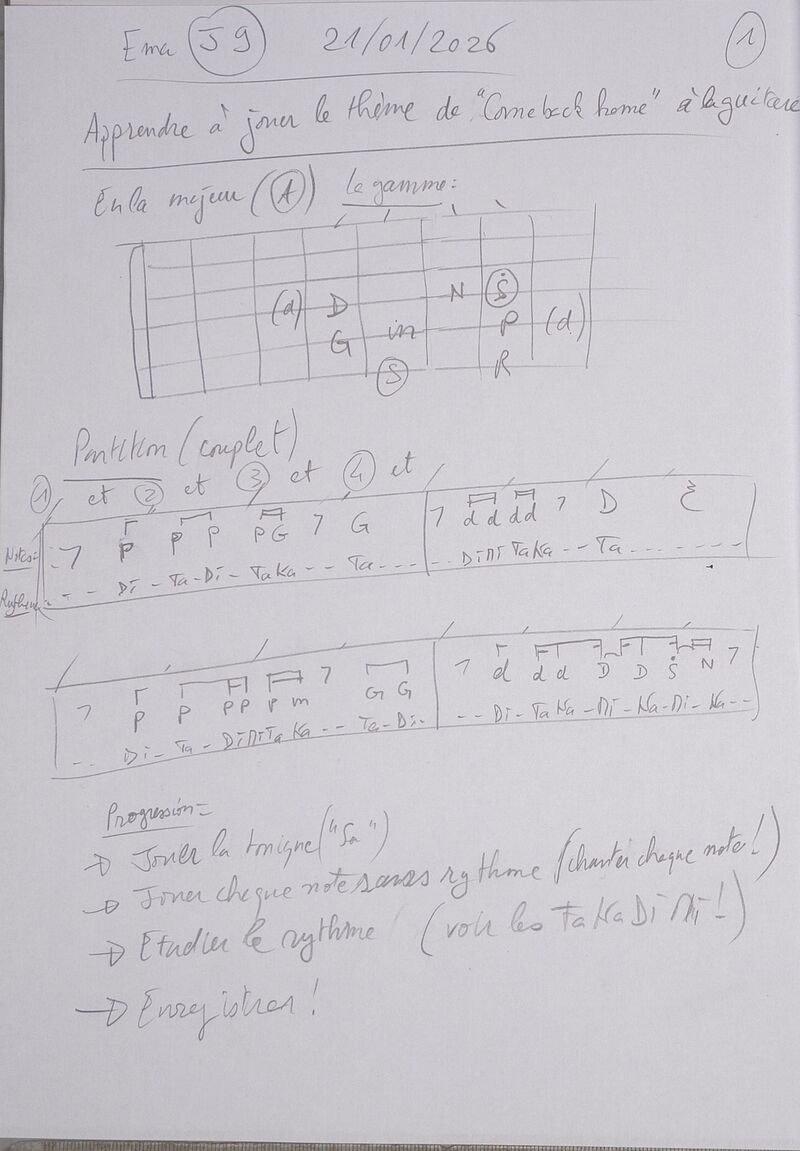 Ema J9 21/01/2026 1
Apprendre à jouer le thème de "Comeback home" à la guitare
En la majeur (A) la gamme:
(d) D N Ṡ
G m P (d)
S R
Partition (couplet)
1 et 2 et 3 et 4 et
Notes: 7 P P P PG 7 G 7 d d dd 7 D ξ
Rythme: - - Di - Ta - Di - TaKa - - Ta - - - - - DiMi TaKa - - Ta - - - - - - -
7 P P PP P m 7 G G 7 d d d D D Ṡ N 7
- - Di - Ta - DiMiTaKa - - Ta - Di - - - Di - TaKa - Mi - Ka - Mi - Ka - -
Progression:
→ Jouer la tonique ("Sa")
→ Jouer chaque note sans rythme (chanter chaque note!)
→ Etudier le rythme (voir les TaKaDiMi!)
→ Enregistrer!